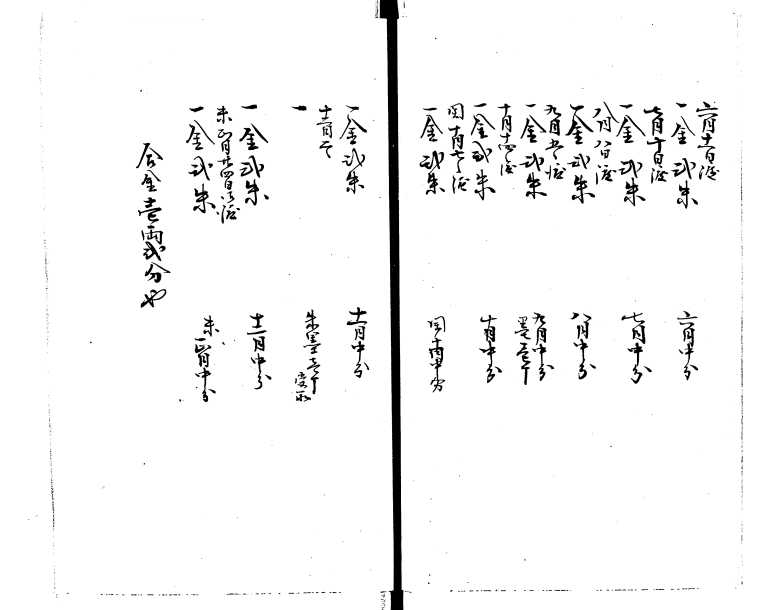 六月十一日渡
一金弐朱 六月中分
七月十日渡
一金弐朱 七月中分
八月八日渡
一金弐朱 八月中分
九月 渡
一金弐朱 九月中分
墨 壱丁
十月十四日渡
一金弐朱 十月中分
閏十月七日渡
一金弐朱 閏十月中分
一金弐朱 十一月中分
十二月
一 朱墨壱丁 受取
一金弐朱 十二月中分
未正月廿四日 渡
一金弐朱 未正月中分
合金壱両弐分也